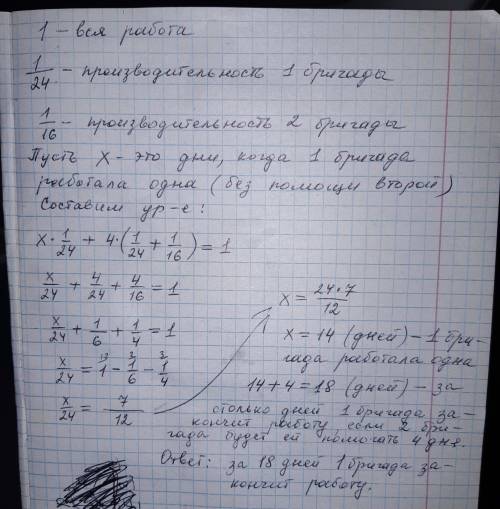 1 – вся работа
1/24 – производительность 1 бригады
1/16 – производительность 2 бригады
Пусть x – это дни, когда 1 бригада
работала одна (без помощи второй)
Составим ур-е:
x · 1/24 + 4 · (1/24 + 1/16) = 1
x/24 + 4/24 + 4/16 = 1
x/24 + 1/6 + 1/4 = 1
x/24 = 1 - 1/6 - 1/4
x/24 = 7/12
x = 24·7/12
x = 14 (дней) – 1 бри-
гада работала одна
14 + 4 = 18 (дней) – за
столько дней 1 бригада за-
кончит работу, если 2 бри-
гада будет ей помогать 4 дня.
Ответ: за 18 дней 1 бригада за-
кончит работу.